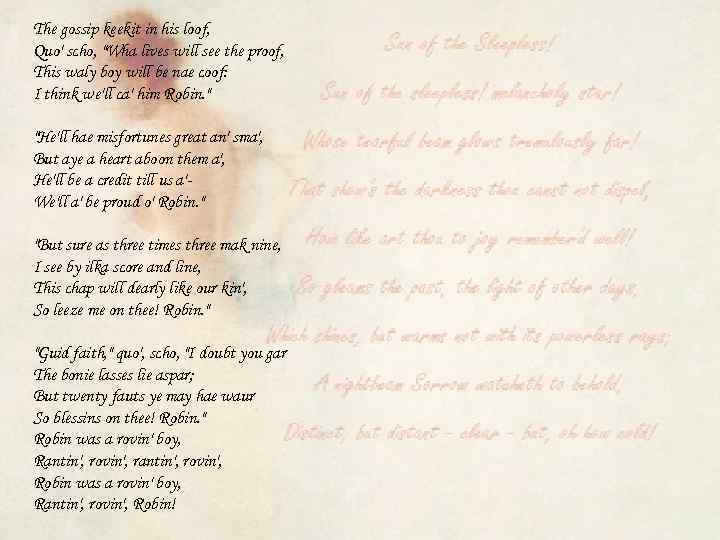 The gossip keekit in his loof,
Quo' scho, "Wha lives will see the proof,
This waly boy will be nae coof:
I think we'll ca' him Robin."

"He'll hae misfortunes great an' sma',
But aye a heart aboon them a',
He'll be a credit till us a'-
We'll a' be proud o' Robin."

"But sure as three times three mak nine,
I see by ilka score and line,
This chap will dearly like our kin',
So leeze me on thee! Robin."

"Guid faith," quo', scho, "I doubt you gar
The bonie lasses lie aspar;
But twenty fauts ye may hae waur
So blessins on thee! Robin."
Robin was a rovin' boy,
Rantin', rovin', rantin', rovin',
Robin was a rovin' boy,
Rantin', rovin', Robin!

Sun of the Sleepless!
Sun of the sleepless! melancholy star!
Whose tearful beam glows tremulously far!
That show'st the darkness thou canst not dispel,
How like art thou to joy remember'd well!
So gleams the past, the light of other days,
Which shines, but warms not with its powerless rays;
A nightbeam Sorrow watcheth to behold,
Distinct, but distant - clear - but, oh how cold!